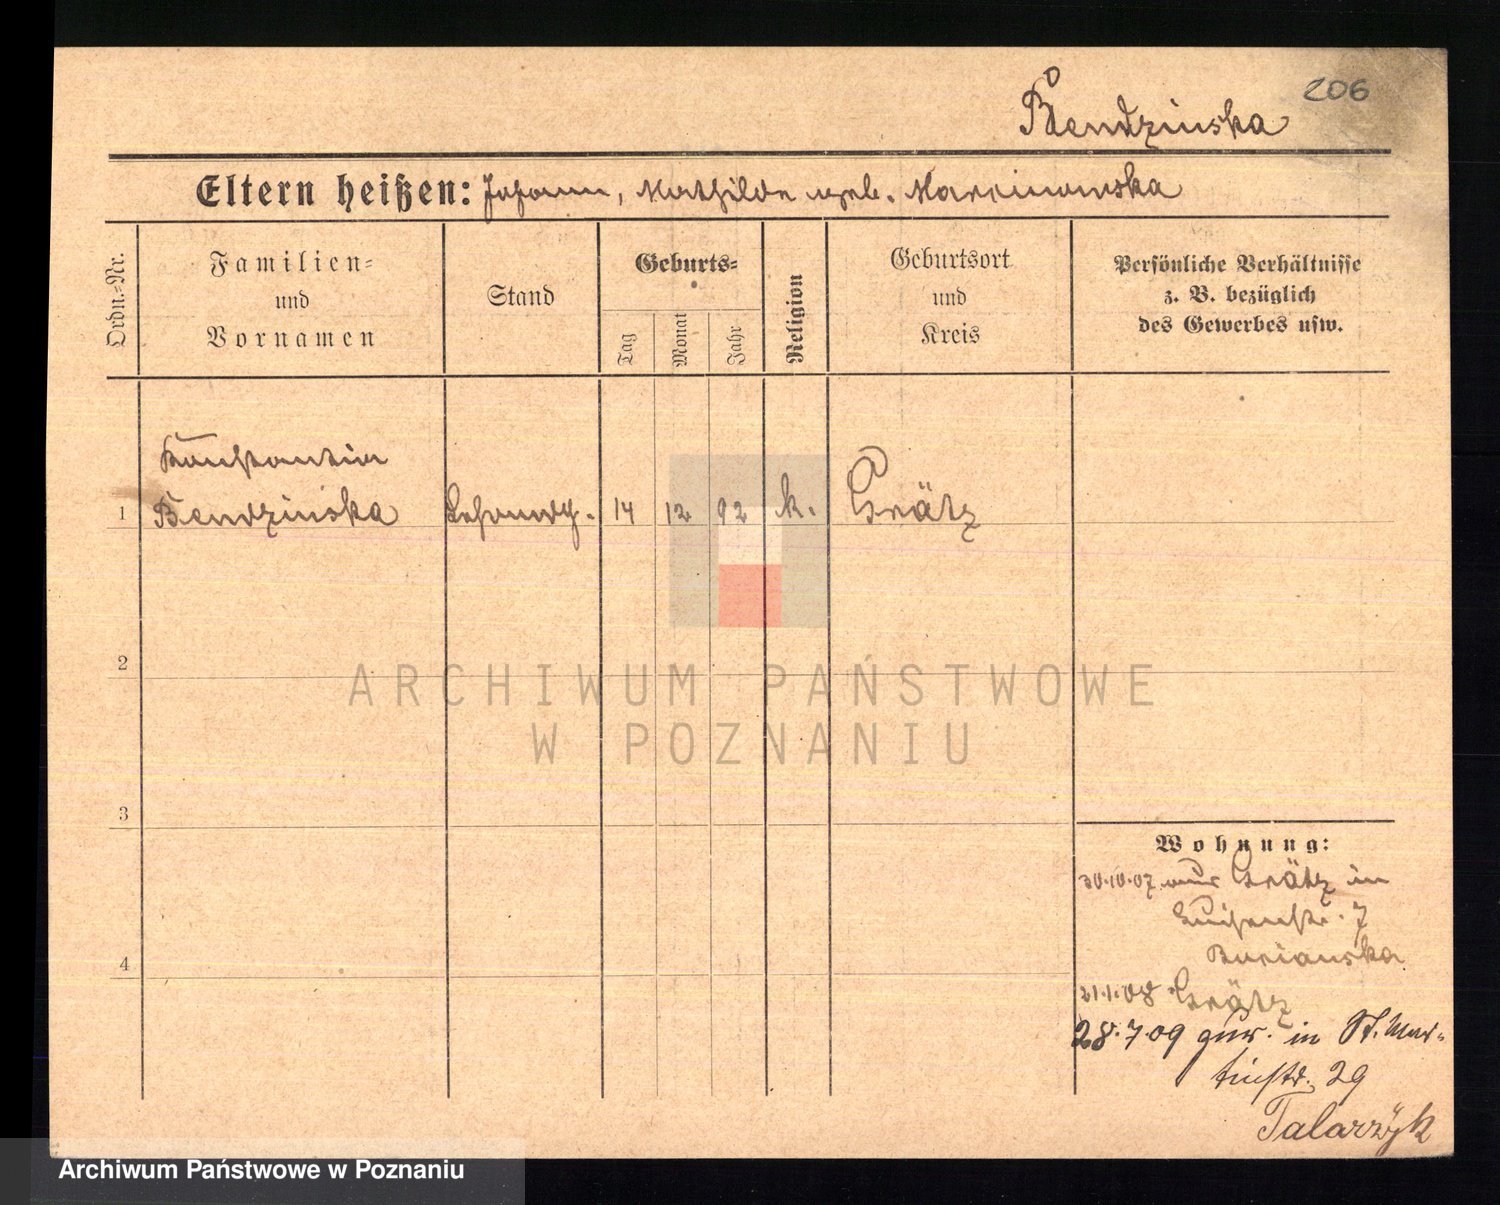 206
Bendzinska
Eltern heißen: Johann, Mathilde geb. Marcinowska
Ordn.-Nr.
Familien-
und
Vornamen
Stand
Geburts-
Tag
Monat
Jahr
Religion
Geburtsort
und
Kreis
Persönliche Verhältnisse
z. B. bezüglich
des Gewerbes usw.
Konstantin
1 Bendzinska 14 12 92 k. Grätz
2
ARCHIWUM PAŃSTWOWE
W POZNANIU
3
Wohnung:
30.10.07 aus Grätz in
Luisenstr. 7
Burianska
4
21.1.08 Grätz
28.7.09 zur. in St. Mar-
tinstr. 29
Talarzyk
Archiwum Państwowe w Poznaniu